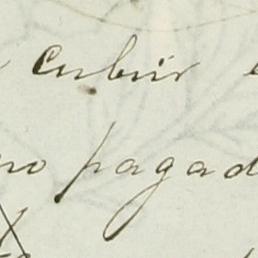 cubrir
no pagad